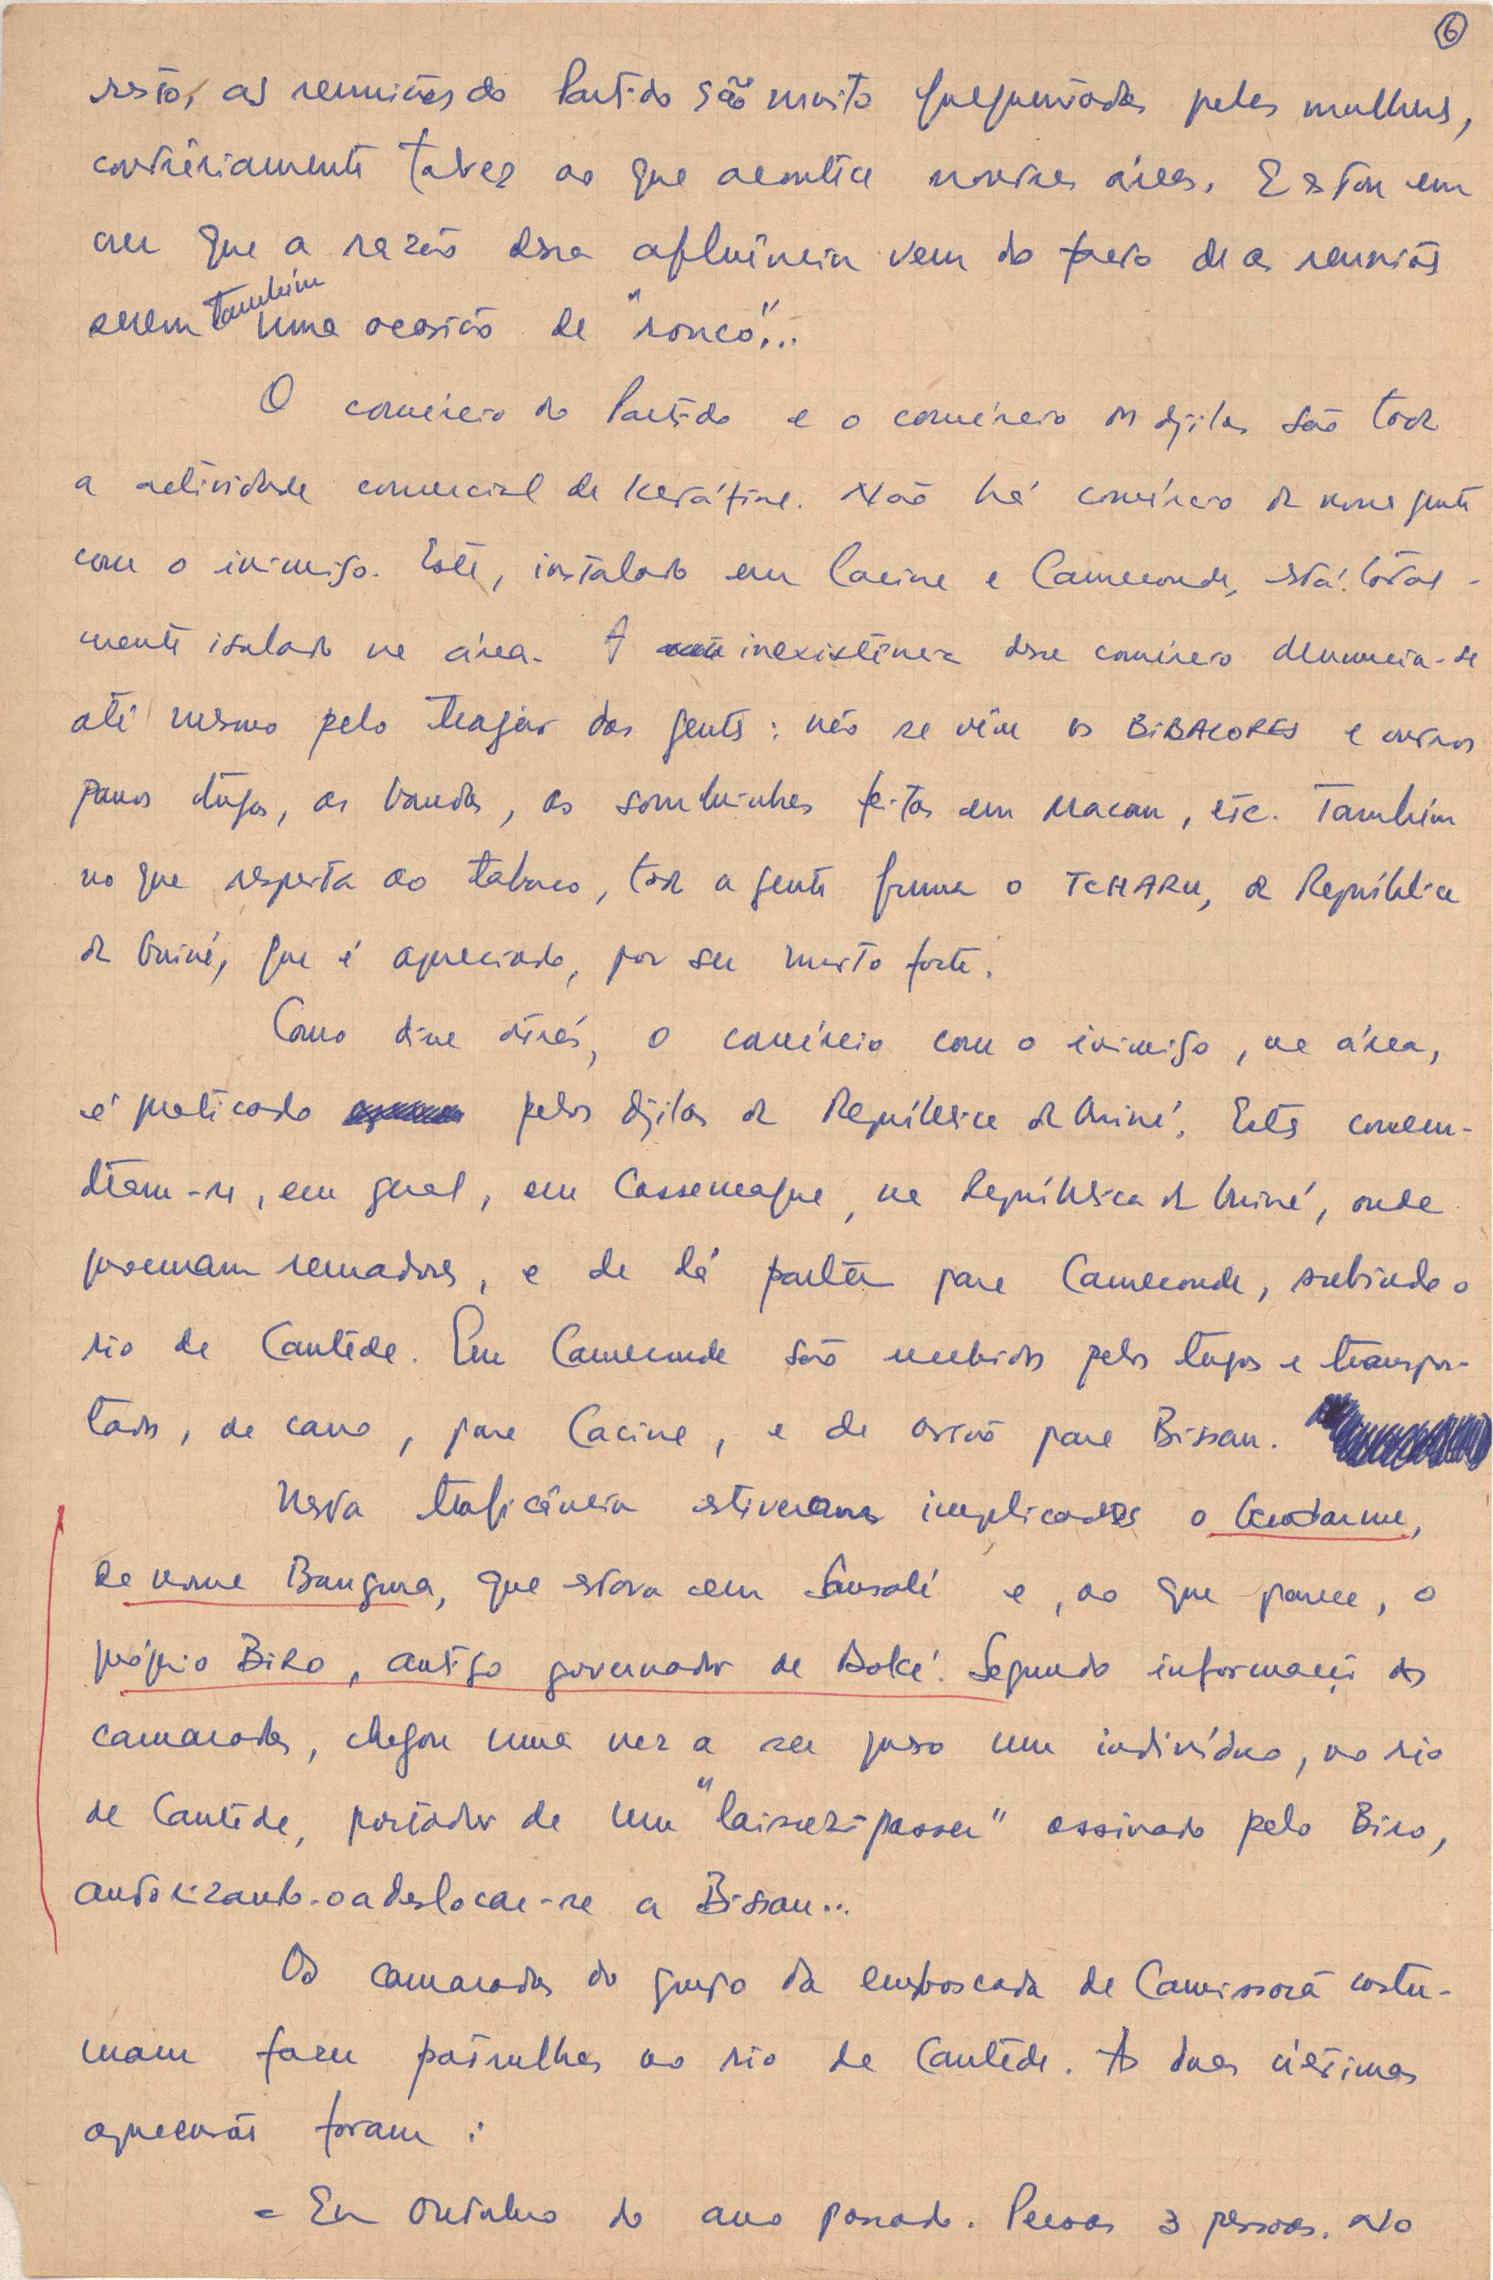 6
resto, as reuniões do Partido são muito frequentadas pelas mulheres,
contràriamente talvez ao que acontece noutras áreas. Estou em
crer que a razão dessa afluência vem do facto de as reuniões
serem também uma ocasião de "ronco"...
O comércio do Partido e o comércio dos djilas são toda
a actividade comercial de Keráfine. Não há comércio da nossa gente
com o inimigo. Este, instalado em Cacine e Cameconde, está total-
mente isolado na área. A inexistência desse comércio denuncia-se
até mesmo pelo trajar das gentes: não se vêm os BIBACORES e outros
panos tugas, as bandas, as sombrinhas feitas em Macau, etc. Também
no que respeita ao tabaco, toda a gente fuma o TCHARU, da República
da Guiné, que é apreciado, por ser muito forte.
Como disse atrás, o comércio com o inimigo, na área,
é praticado pelos djilas da República da Guiné. Estes concen-
tram-se, em geral, em Cassemaque, na República da Guiné, onde
procuram remadores, e de lá partem para Cameconde, subindo o
rio de Cantêde. Em Cameconde são recebidos pelos tugas e transpor-
tados, de carro, para Cacine, e de avião para Bissau.
Nesta traficância estiveram implicados o Gendarme,
de nome Bangura, que estava em Sansalé e, ao que parece, o
próprio Biro, antigo governador de Boké. Segundo informação dos
camaradas, chegou uma vez a ser preso um indivíduo, no rio
de Cantêde, portador de um "laissez-passer" assinado pelo Biro,
autorizando-o a deslocar-se a Bissau...
Os camaradas do grupo da emboscada de Camissorã costu-
mam fazer patrulhas no rio de Cantêde. As duas últimas
apreensões foram:
- Em Outubro do ano passado. Presas 3 pessoas. No